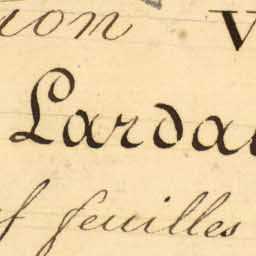 ion V
Larda
f feuilles